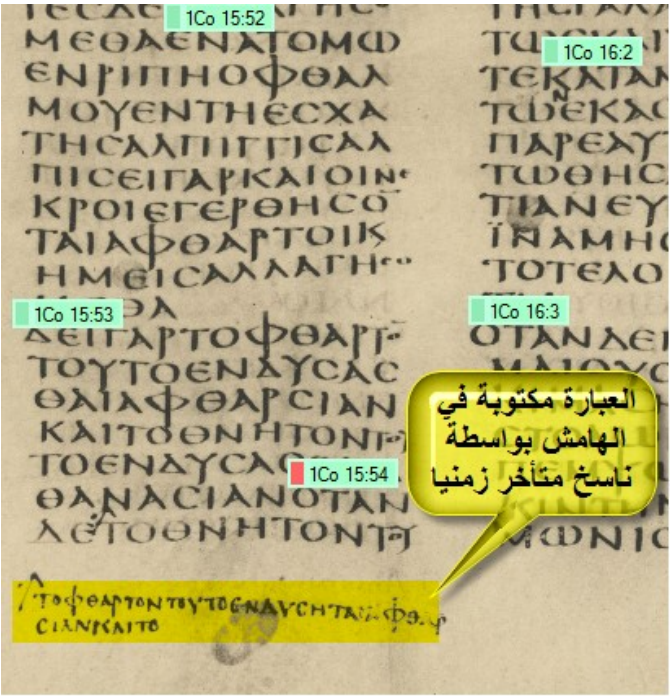 1Co 15:52
ΜΕΘΑΕΝΑΤΟΜΩ
ΕΝΡΙΠΗΟΦΘΑΛ
ΜΟΥΕΝΤΗΕCΧΑ
ΤΗCΑΛΠΙΓΓΙCΑΛ
ΠΙCΕΙΓΑΡΚΑΙΟΙΝΕ
ΚΡΟΙΕΓΕΡΘΗCΟ̅
ΤΑΙΑΦΘΑΡΤΟΙΚ
ΗΜΕΙCΑΛΛΑΓΗCΟ
1Co 15:53
ΔΕΙΓΑΡΤΟΦΘΑΡΤΟ
ΤΟΥΤΟΕΝΔΥCΑC
ΘΑΙΑΦΘΑΡCΙΑΝ
ΚΑΙΤΟΘΝΗΤΟΝΤΟΥ
ΤΟΕΝΔΥCΑC
1Co 15:54
ΘΑΝΑCΙΑΝΟΤΑΝ
ΔΕΤΟΘΝΗΤΟΝΤΟΥ
ΤΟΦΘΑΡΤΟΝΤΟΥΤΟΕΝΔΥCΗΤΑΙΑΦΘΑΡ
CΙΑΝΚΑΙΤΟ
1Co 16:2
ΤΕΚΑΤΑΜ
ΤΩΕΚΑC
ΠΑΡΕΑΥ
ΤΩΘΗC
ΤΙΑΝΕΥ
ΪΝΑΜΗ
ΤΟΤΕΛΟ
1Co 16:3
ΟΤΑΝΔΕ
العبارة مكتوبة في
الهامش بواسطة
ناسخ متأخر زمنيا